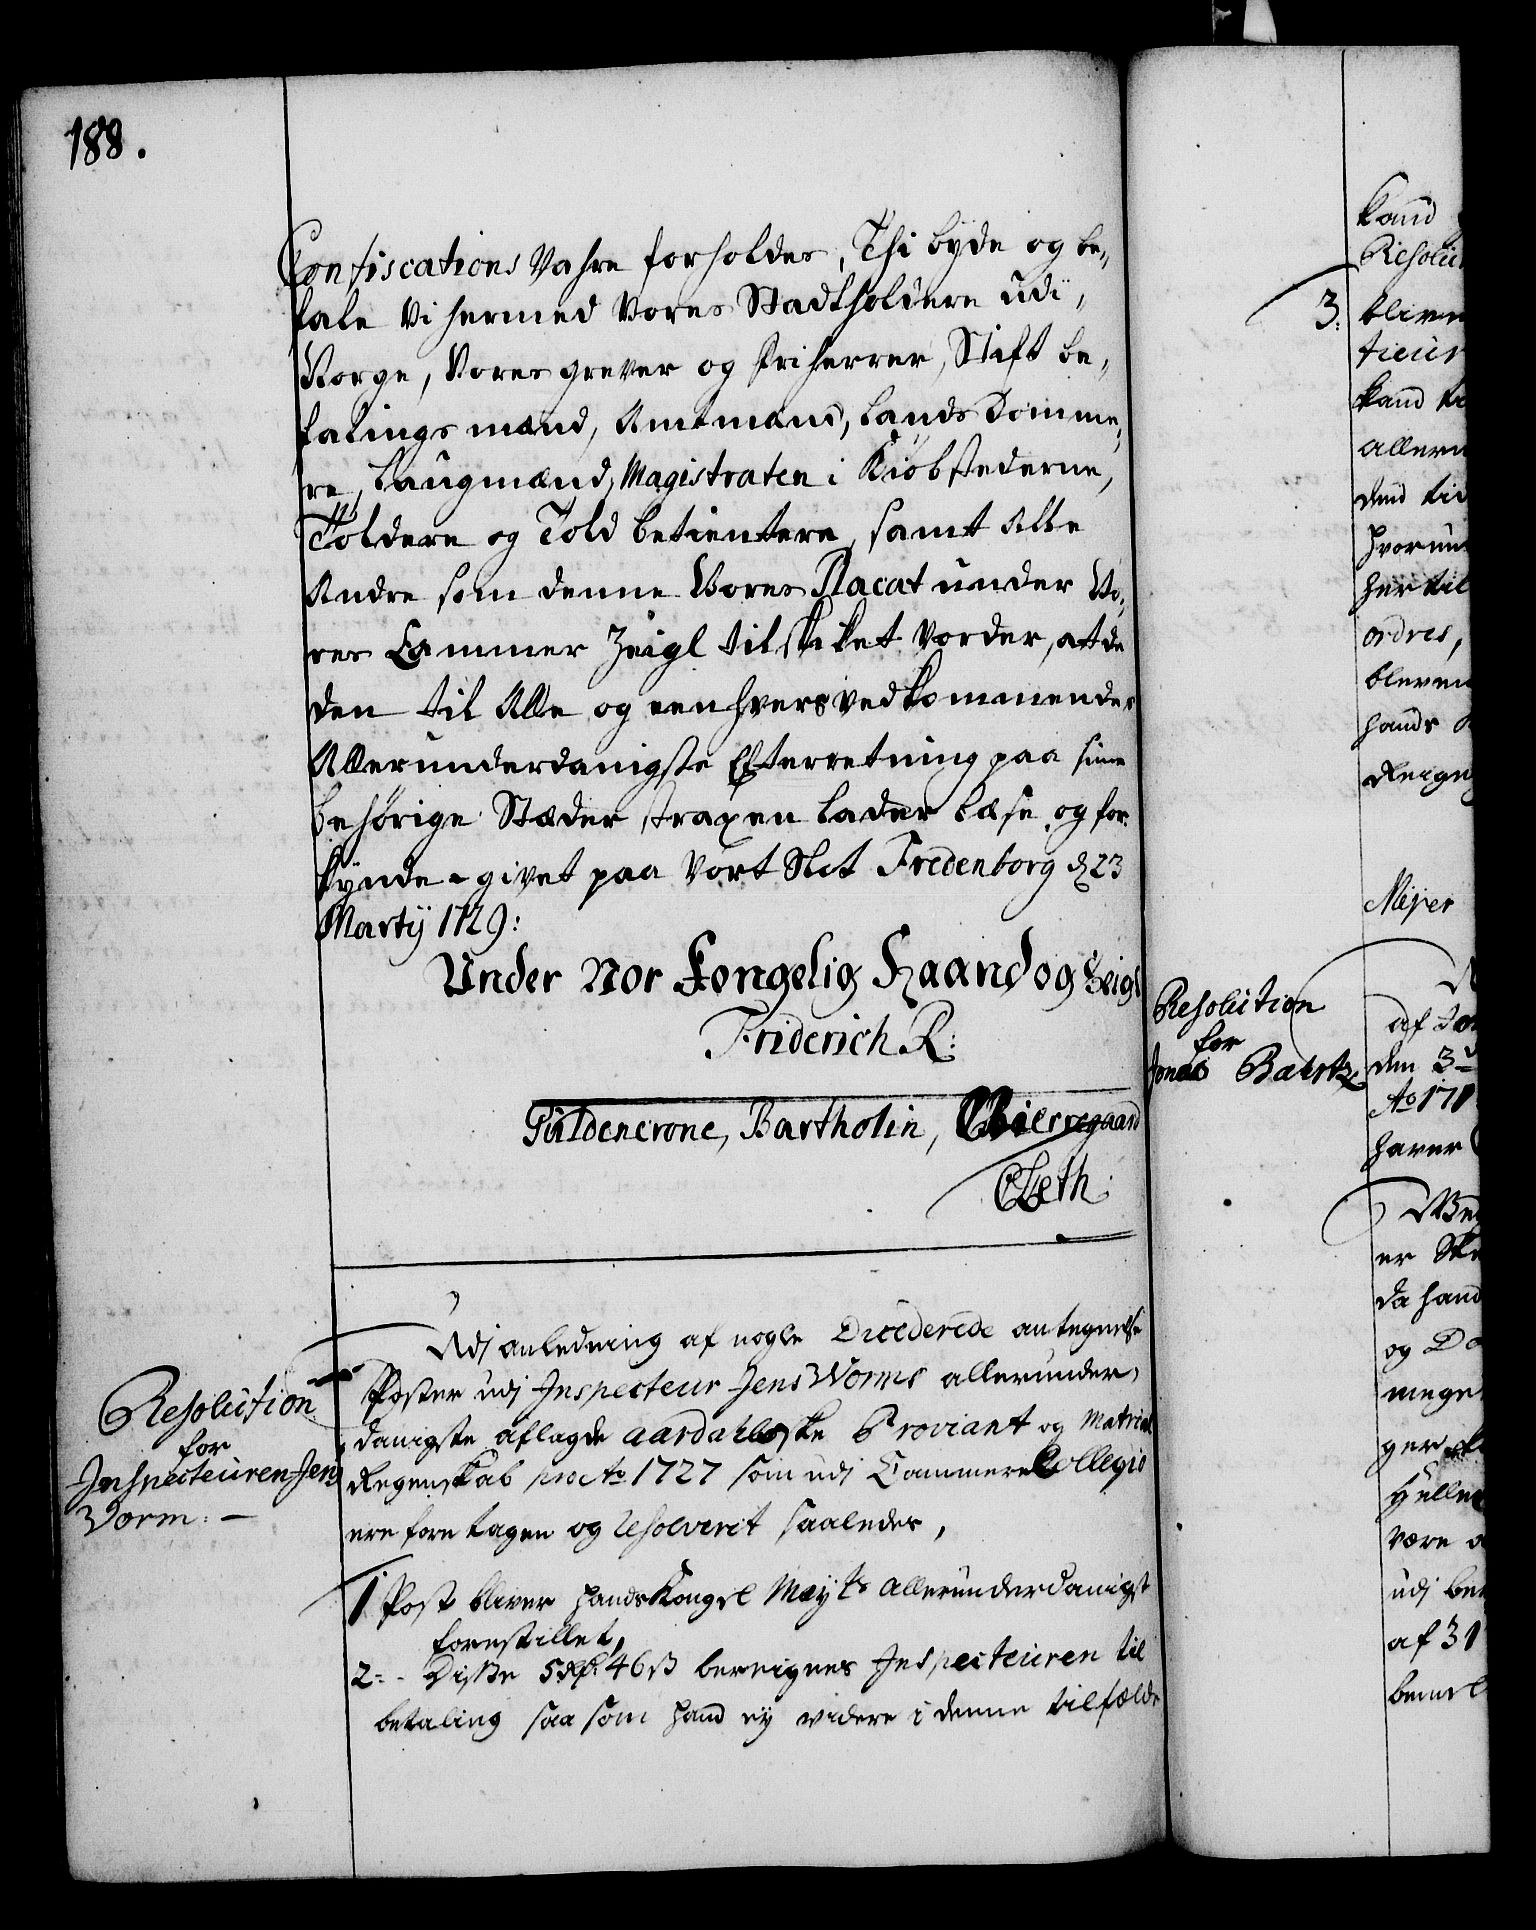 188.
Confiscations Vahre forholdes, Thi byde og be„
fale Vi hermed Vores Stadtholdere udi„
Norge, Vores grever og friherrer, Stift be„
falings mænd, Amtmænd, Lands Domme„
re, Laugmænd, Magistraten i Kiöbstederne,
Toldere og Told betientere, samt Alle
Andre som denne Vores Placat under Vo„
res Cammer Zeigl tilskiket vorder, at de
den til Alle og een hvers vedkommendes
Allerunderdanigste Efterretning paa sine
behörige Stæder straxen lader læse og for„
kynde - givet paa Vort Slot Fredenborg d 23
Martij 1729:
Under Vor Kongelig Haand og Zeigl
Friderich R:
Güldencrone, Bartholin, CBierregaard
CLeth.
Udj anledning af nogle Deciderede antegnelse
Poster udj Inspecteur Jens Worms allerunder„
danigste aflagde aardahlske Proviant og Matrial
Regenskab pro Ao 1727 som udj Cammer Collegio
ere foretagen og Resolverit saaledes,
Resolution
for
Inspecteuren Jens
Vorm: -
1 Post bliver hands Kongel Mayts allerunderdanigst
forestillet,
2:- Disse 5 Rdr: 46 ß bereignes Inspecteuren til
betaling saa som hand ey videre i denne tilfælde
kand
Resolut
3: bliver
ticur
kand
allern
dend til
hvorun
her til
ordres,
bleven
hands
Reign
Meyer
Resolution
for
Jonas
af
den 3
Ao 171
haver
er
da hand
og
mege
ger
være
udj
af 31